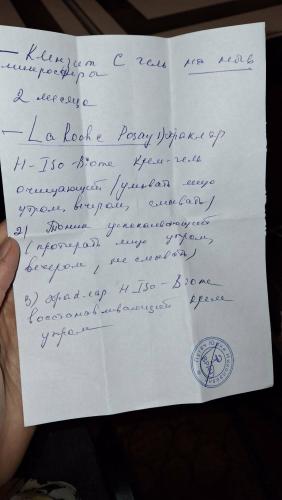 — Клензит С гель на ночь
микросфера
2 месяца
— La Roche Posay 1) Эфаклар
H-Iso-Biome крем-гель
очищающий (умывать лицо
утром, вечером, смывать)
2) Тоник успокаивающий
(протирать лицо утром,
вечером, не смывать)
3) Эфаклар H Iso-Biome
восстанавливающий крем
утром